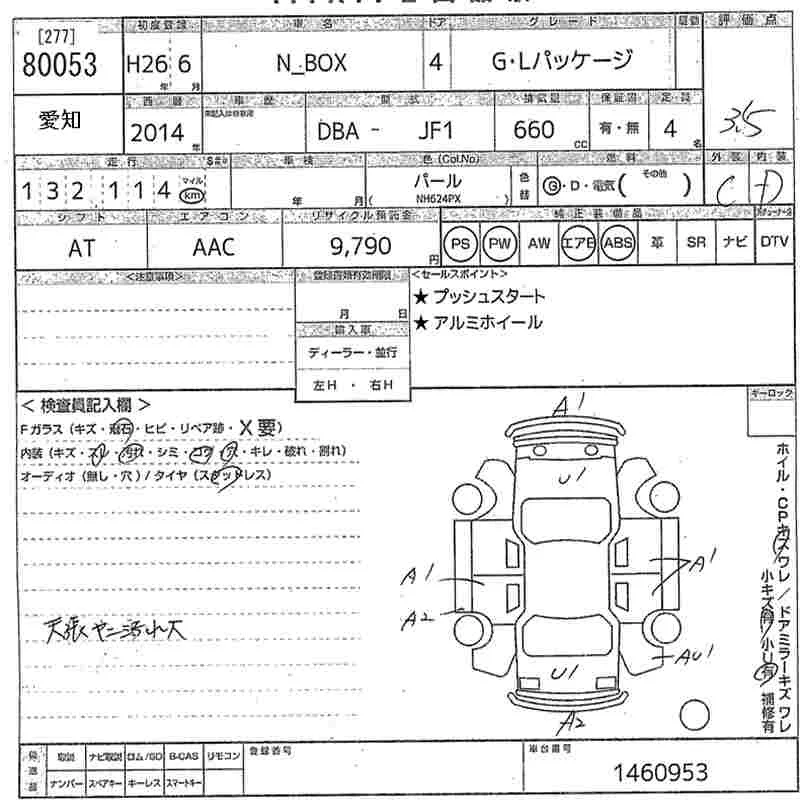 [277]
80053
初度登録 車名 ドア グレード 駆動 評価点
H26 年 6 月 N_BOX 4 G・Lパッケージ
3.5
愛知
西暦 車歴 型式 排気量 保証書 定員
2014 年 DBA - JF1 660 CC 有・無 4 名
走行 車検 色(Col.No) 燃料 外装 内装
132114 マイル km 年 月 パール ( NH624PX ) 色替 G・D・電気( その他 ) C D
シフト エアコン リサイクル預託金 純正装備品
AT AAC 9,790 円 PS PW AW エアB ABS 革 SR ナビ DTV
<注意事項> 登録書類有効期限 <セールスポイント>
月 日
★ プッシュスタート
★ アルミホイール
輸入車
ディーラー・並行
左H ・ 右H
< 検査員記入欄 >
Fガラス(キズ・飛石・ヒビ・リペア跡・X要)
内装(キズ・スレ・汚れ・シミ・コゲ・穴・キレ・破れ・割れ)
オーディオ(無し・穴)/タイヤ(スタッドレス)
天張ヤニ汚れ大
キーロック
A1
U1
A1
A1
A2
AU1
U1
A2
ホイル・CPキズワレ/ドアミラーキズワレ
小キズ有/小U有 補修有
取説 ナビ取説 ロム/SD B-CAS リモコン
ナンバー スペアキー キーレス スマートキー
登録番号
車台番号
1460953